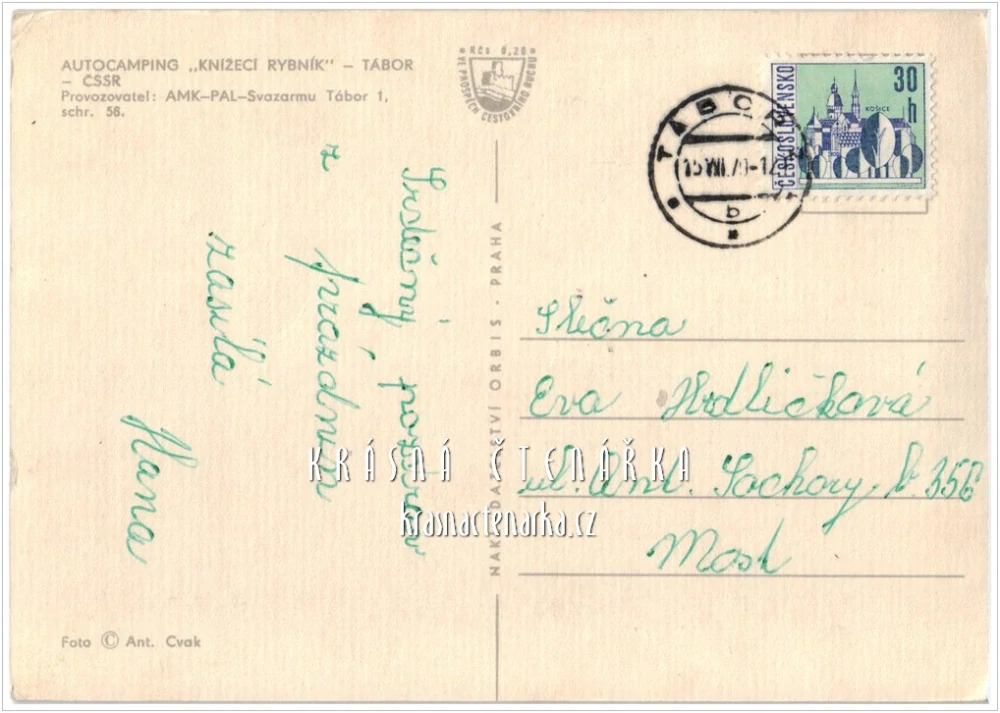 AUTOCAMPING „KNÍŽECÍ RYBNÍK" – TÁBOR
– ČSSR
Provozovatel: AMK–PAL–Svazarmu Tábor 1,
schr. 58.
Kčs 0,20
VE PROSPĚCH CESTOVNÍHO RUCHU
TÁBOR
b
ČESKOSLOVENSKO
30
h
KOŠICE
Srdečný pozdrav
z prázdnin
zasílá
Hana
NAKLADATELSTVÍ ORBIS - PRAHA
Slečna
Eva Hrdličková
ul. Ant. Sochory, b. 356
Most
KRÁSNÁ ČTENÁŘKA
krasnactenarka.cz
Foto © Ant. Cvak